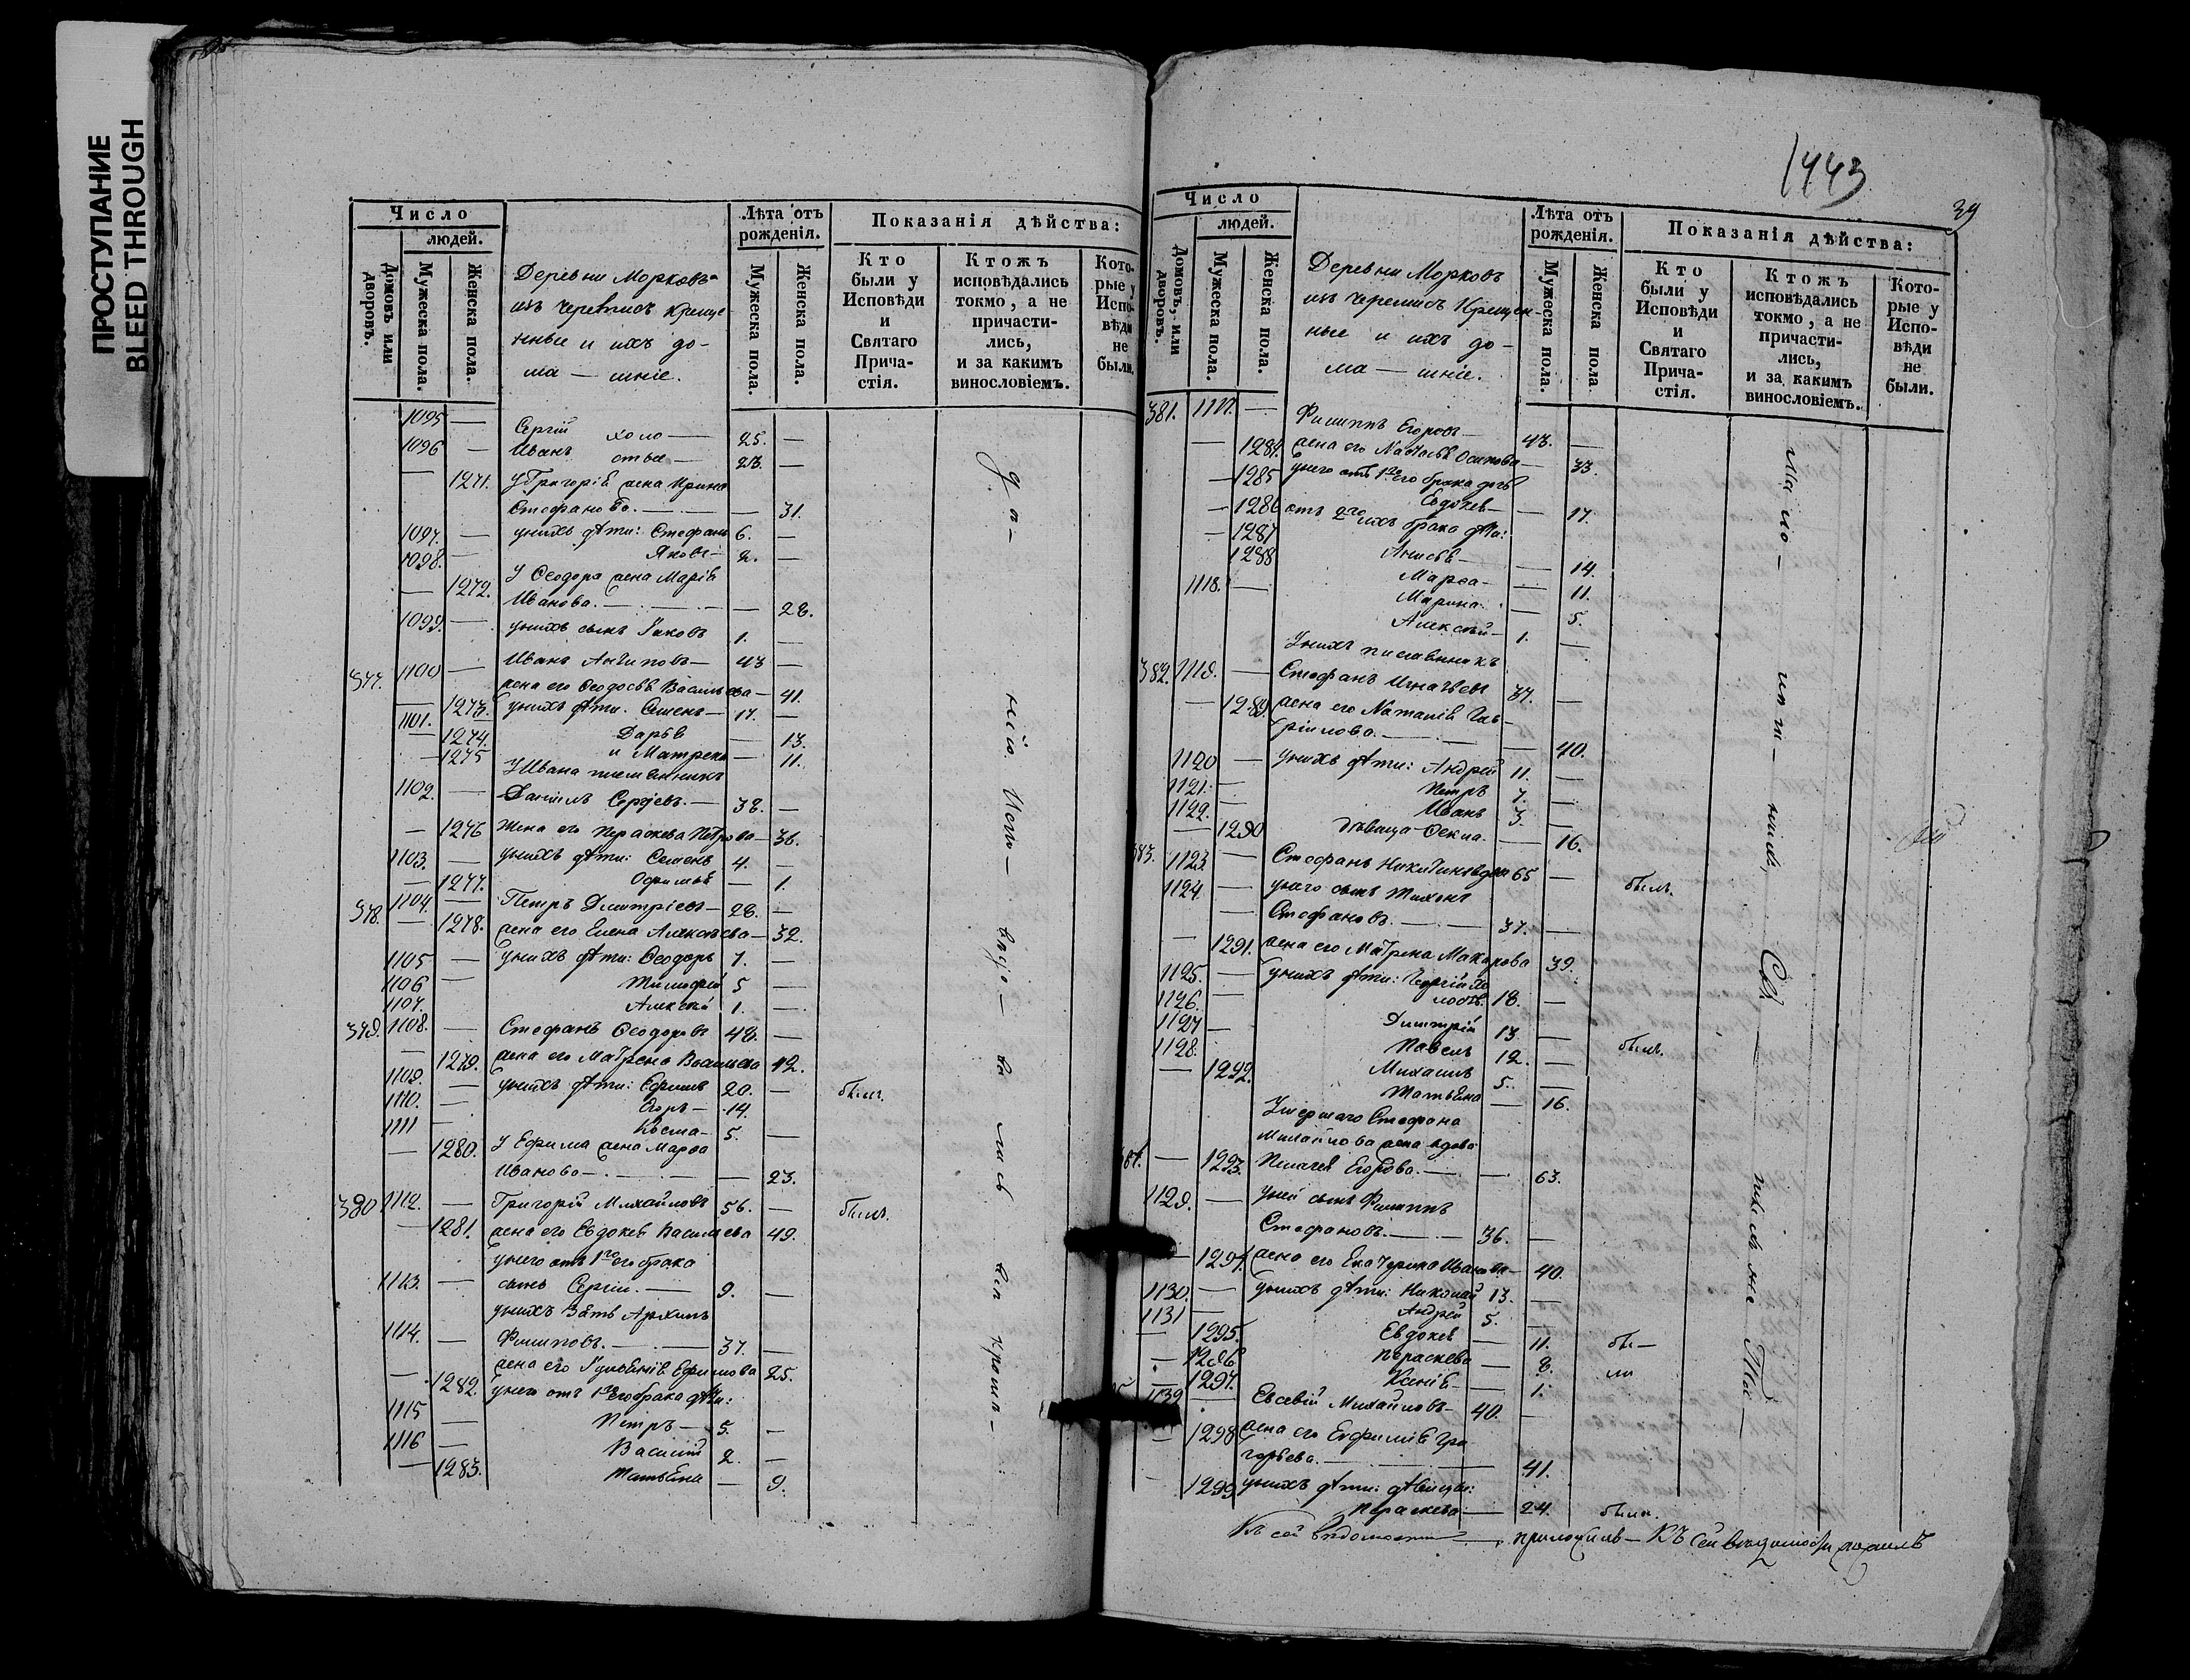 ПРОСТУПАНИЕ
BLEED THROUGH
Число
людей.
Домовъ или дворовъ.
Мужеска пола.
Женска пола.
Деревни Морковъ
изъ черемисъ Креще-
нные и ихъ до-
ма — шніе.
Лѣта отъ рожденія.
Мужеска пола.
Женска пола.
Показанія дѣйства:
Кто были у Исповѣди и Святаго Прича-стія.
Ктожъ исповѣдались токмо, а не причасти-лись, и за какимъ винословіемъ.
Кото-рые у Испо-вѣди не были.
1095 — Сергій холо — 25. —
1096 — Иванъ стые — 23. —
— 1271. У Григорія жена Ирина
Стефанова. — — 31.
1097. — у нихъ дѣти: Стефанъ 6. —
1098. — Яковъ — 2. —
— 1272. У Ѳеодора жена Марія
Иванова. — — 28.
1099. — у нихъ сынъ Іаковъ 1. —
377. 1100 — Иванъ Антиповъ — 43 —
жена его Ѳеодосья Васильева — 41.
— 1273.
1101. у нихъ дѣти: Семенъ — 17. —
— 1274. Дарья — 13.
— 1275 и Матрена — 11.
У Ивана племянникъ
1102. — Даніилъ Сергѣевъ. — 38. —
— 1276 Жена его Параскева Петрова — 36.
1103. — у нихъ дѣти: Семенъ 4. —
— 1277. Офимья — 1.
378. 1104. — Петръ Димитріевъ — 28. —
— 1278. жена его Елена Алексѣева — 32.
1105 — у нихъ дѣти: Ѳеодоръ 7. —
1106 — Тимофей 5 —
1107. Алексѣй 1. —
379. 1108. — Стефанъ Ѳеодоровъ 48. —
— 1279. жена его Матрена Васильева 42.
1109. — у нихъ дѣти: Ефимъ 20. — былъ.
1110. — Егоръ — 14.
1111 — Косма — 5. —
— 1280. У Ефима жена Марѳа
Иванова — — 23.
380 1112. — Григорій Михайловъ 56. — былъ.
— 1281. жена его Евдокія Васильева 49.
у него отъ 1го его брака
1113. — сынъ Сергій. — 9. —
у нихъ зять Архипъ
1114. — Филиповъ. — 37. —
— 1282. жена его Ульянія Ефимова 25.
у него отъ 1го его брака дѣти:
1115 — Петръ — 5. —
1116 — Василій 2. —
— 1283. Татьяна — 9.
1443
39
Число
людей.
Домовъ, или дворовъ.
Мужеска пола.
Женска пола.
Деревни Морковъ
изъ черемисъ Крещен-
ные и ихъ до-
ма — шніе.
Лѣта отъ рожденія.
Мужеска пола.
Женска пола
Показанія дѣйства:
Кто были у Исповѣди и Святаго Прича-стія.
Ктожъ исповѣдались токмо, а не причасти-лись, и за какимъ винословіемъ.
Кото-рые у Испо-вѣди не были.
381. 1117. — Филиппъ Егоровъ — 43. —
— 1284. жена его Наталья Осипова — 33.
— 1285 у него отъ 1го его брака дочь
Евдокія — — 17.
— 1286 отъ 2го ихъ брака дѣти:
— 1287 Анисья — — 14.
1288 Марѳа — — 11.
1118. — Марина. — 5.
Алексѣй — 1. —
У нихъ племянникъ
382. 1119. — Стефанъ Игнатьевъ 37. —
— 1289. жена его Наталія Гав-
рілова. — — 40.
1120 — у нихъ дѣти: Андрей 11. —
1121. — Петръ 7. —
1122. — Иванъ 3. —
— 1290 дѣвица Ѳекла. — 16.
383. 1123 — Стефанъ Никитинъ вдов 65 — былъ.
1124. — у него сынъ Тихонъ
— Стефановъ. — 37. —
— 1291. жена его Матрена Макарова 39.
1125. — у нихъ дѣти: Георгій хо
1126. — лостъ. 18. —
1127. — Димитрій 13 — былъ.
1128. Павелъ 12. —
— 1292. Михаилъ 5. —
Татьяна — 16.
Умершаго Стефана
Михайлова жена вдова
384. — 1293. Пелагея Егорова. — — 63.
1129. — у ней сынъ Филиппъ
Стефановъ. — 36. —
— 1294. жена его Екатерина Иванова — 40.
1130. — у нихъ дѣти: Николай 13. —
1131 — Андрей 5. —
— 1295. Евдокія — 11. бы —
— 1296. Параскева — 8. ли
— 1297. Ксенія — — 1.
1132 — Евсевій Михайловъ — 40. —
— 1298 жена его Евфимія Гри
горьева. — — 41.
— 1299 у нихъ дѣти: дѣвицы:
Параскева — — 24. была.
Къ сей вѣдомости — приложилъ — Къ сей вѣдомости